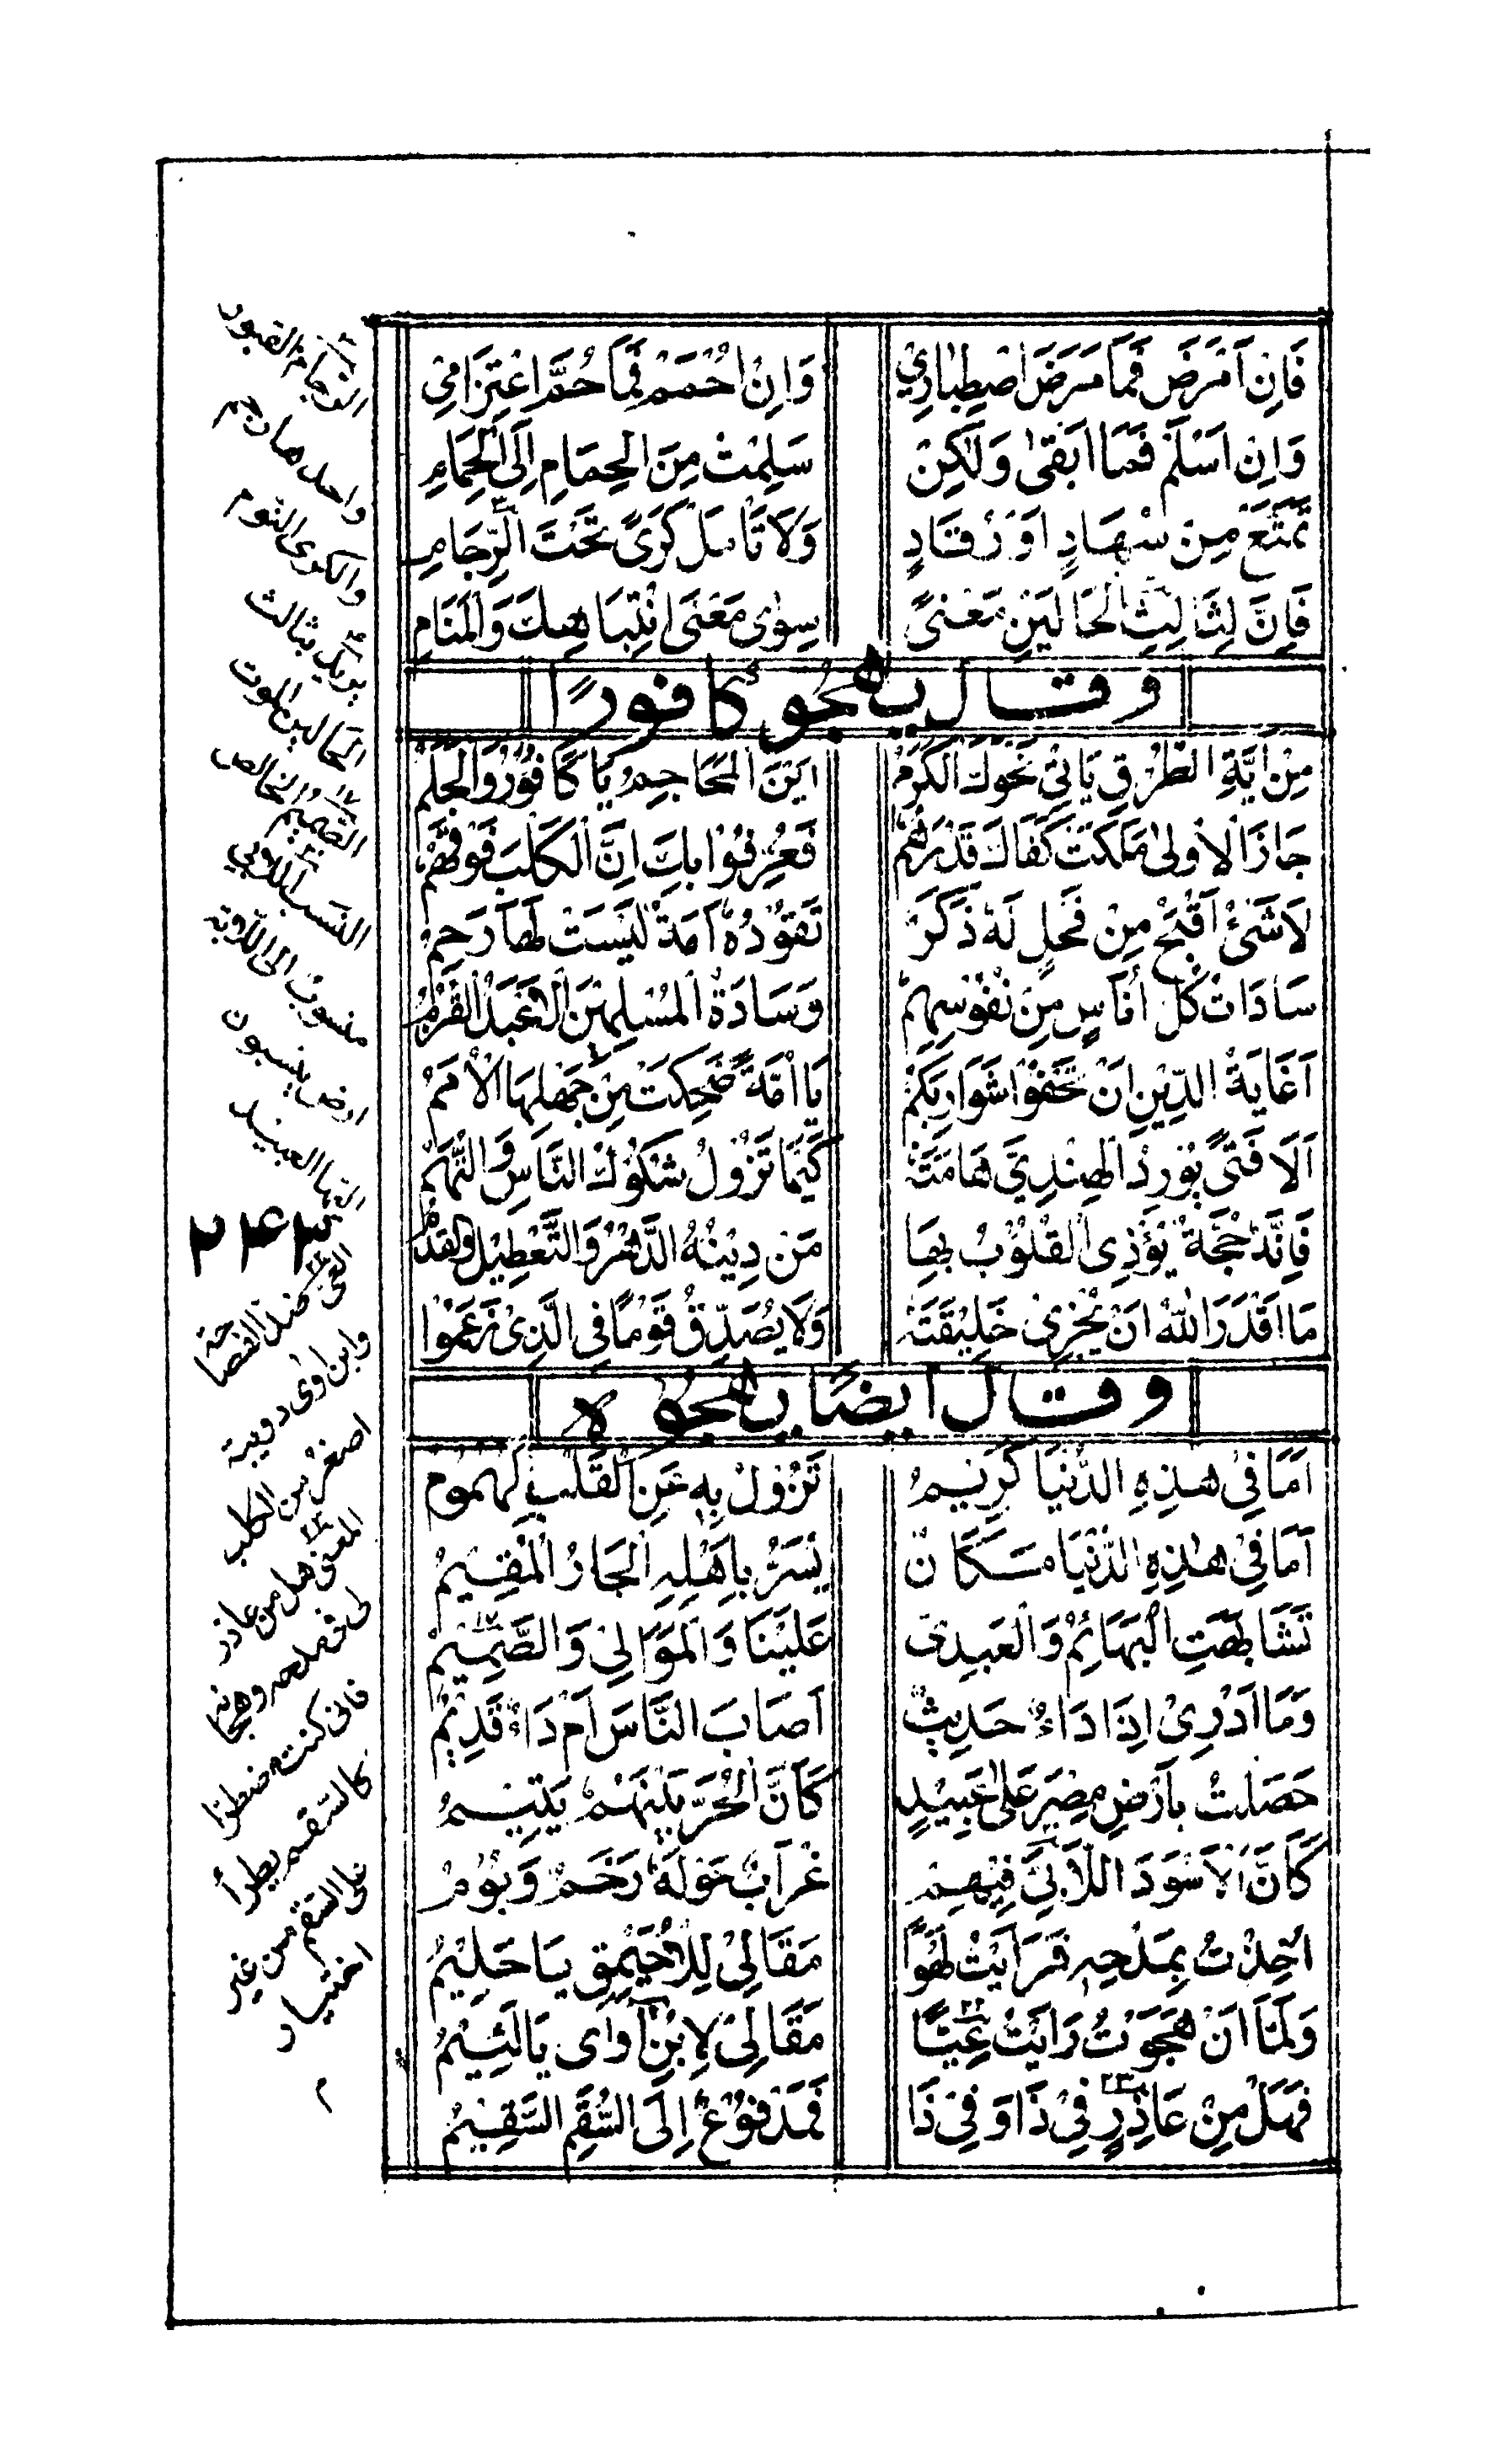 فَاِنْ اَمْرَضْ فَمَا مَرَضَ اصْطِبَارِيْ وَاِنْ اُحْمَمْ فَمَا حُمَّ اعْتِزَامِيْ
وَاِنْ اَسْلَمْ فَمَا اَبْقىٰ وَلٰكِنْ سَلِمْتُ مِنَ الْحِمَامِ اِلَى الْحِمَامِ
تَمَتَّعْ مِنْ سُهَادٍ اَوْ رُقَادٍ وَلَا تَأْمَلْ كَرَىً تَحْتَ الرِّجَامِ
فَاِنَّ لِثَالِثِ الْحَالَيْنِ مَعْنىً سِوٰى مَعْنَى انْتِبَاهِكَ وَالْمَنَامِ
وقال يهجو كافورًا
مِنْ اَيَّةِ الطُّرُقِ يَاتِيْ نَحْوَكَ الْكَرَمُ اَيْنَ الْمَحَاجِمُ يَا كَافُوْرُ وَالْجَلَمُ
جَازَ الْاُولىٰ مَلَكَتْ كَفَّاكَ قَدْرَهُمُ فَعُرِّفُوْا بِكَ اِنَّ الْكَلْبَ فَوْقَهُمُ
لَا شَىْءَ اَقْبَحُ مِنْ فَحْلٍ لَهُ ذَكَرٌ تَقُوْدُهُ اَمَةٌ لَيْسَتْ لَهَا رَحِمُ
سَادَاتُ كُلِّ اُنَاسٍ مِنْ نُفُوْسِهِمُ وَسَادَةُ الْمُسْلِمِيْنَ الْاَعْبُدُ الْقَزَمُ
اَغَايَةُ الدِّيْنِ اَنْ تُحْفُوْا شَوَارِبَكُمْ يَا اُمَّةً ضَحِكَتْ مِنْ جَهْلِهَا الْاُمَمُ
اَلَا فَتًى يُوْرِدُ الْهِنْدِيَّ هَامَتَهُ كَيْمَا تَزُوْلَ شُكُوْكُ النَّاسِ وَالتُّهَمُ
فَاِنَّهُ حُجَّةٌ يُؤْذِى الْقُلُوْبَ بِهَا مَنْ دِيْنُهُ الدَّهْرُ وَالتَّعْطِيْلُ وَالْقِدَمُ
مَا اَقْدَرَ اللّٰهَ اَنْ يُخْزِىْ خَلِيْقَتَهُ وَلَا يُصَدِّقُ قَوْمًا فِى الَّذِىْ زَعَمُوْا
وقال ايضًا يهجوه
اَمَا فِىْ هٰذِهِ الدُّنْيَا كَرِيْمُ تَزُوْلُ بِهِ عَنِ الْقَلْبِ الْهُمُوْمُ
اَمَا فِىْ هٰذِهِ الدُّنْيَا مَكَانٌ يُسَرُّ بِاَهْلِهِ الْجَارُ الْمُقِيْمُ
تَشَابَهَتِ الْبَهَائِمُ وَالْعَبِدىّ عَلَيْنَا وَالْمَوَالِىْ وَالصَّمِيْمُ
وَمَا اَدْرِىْ اِذَا دَاءٌ حَدِيْثٌ اَصَابَ النَّاسَ اَمْ دَاءٌ قَدِيْمُ
حَصَلْتُ بِاَرْضِ مِصْرَ عَلىٰ عَبِيْدٍ كَاَنَّ الْحُرَّ بَيْنَهُمْ يَتِيْمُ
كَاَنَّ الْاَسْوَدَ اللَّابِىَّ فِيْهِمْ غُرَابٌ حَوْلَهُ رَخَمٌ وَبُوْمُ
اُخِذْتُ بِمَدْحِهِ فَرَاَيْتُ لَهْوًا مَقَالِىْ لِلْاُحَيْمِقِ يَا حَلِيْمُ
وَلَمَّا اَنْ هَجَوْتُ رَاَيْتُ عِيًّا مَقَالِىْ لِابْنِ اٰوٰى يَا لَئِيْمُ
فَهَلْ مِنْ عَاذِرٍ فِىْ ذَا وَفِىْ ذَا فَمَدْفُوْعٌ اِلَى السُّقْمِ السَّقِيْمُ
الرجام القبور
واحدها رجم
والكرى النوم
يريد بثالث
الحالين الموت
الصميم الخالص
النسب اللابي
منسوب الى اللابة
ارض ينسبون
اليها العبيد
٢٤٣
العى ضد الفصاحة
وابن اوى دويبة
اصغر من الكلب
المعنى هل من عاذر
لى فى مدحه وهجائه
فانى كنت مضطرا
كالسقيم يطرأ
على السقم من غير
اختيار